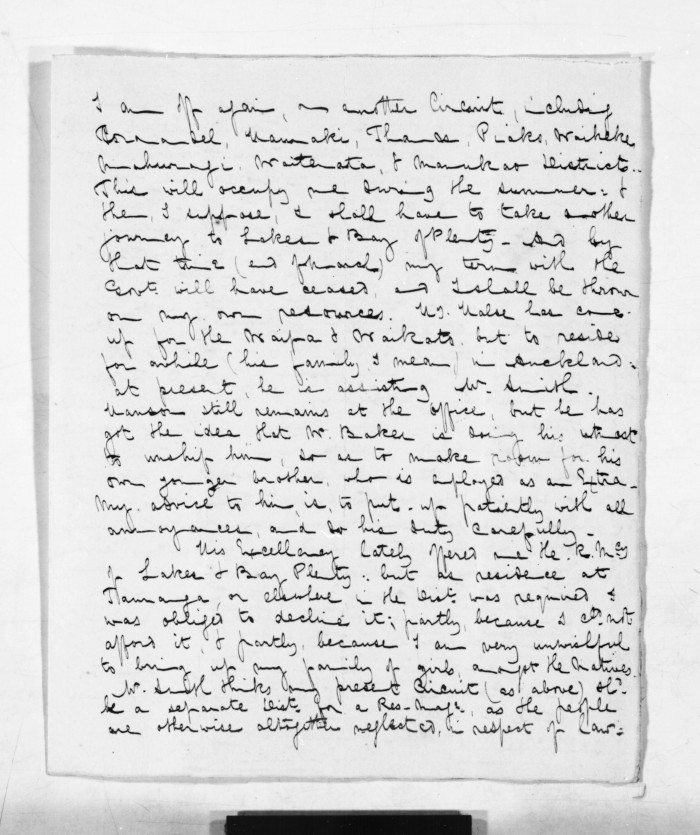 I am off again, on another Circuit, including
Coromandel, Hauraki, Thames, Piako, Waiheke,
Mahurangi, Waitemata, & Manukau Districts.
This will occupy me during the summer: &
then, I suppose, I shall have to take another
journey to Lakes & Bay of Plenty - And by
that time (end of March) my term with the
Govt. will have ceased, and I shall be thrown
on my own resources. Mr. Halse has come
up for the Waipa & Waikato, but to reside
for awhile (his family I mean) in Auckland:
at present, he is assisting Mr. Smith.
still remains at the office, but he has
got the idea that Mr. Baker is doing his utmost
to him, so as to make room for his
own younger brother, who is employed as an Extra-
My advice to him, is, to put-up patiently with all
annoyances, and do his duty carefully-
His Excellency lately offered me the R. Mcy
of Lakes & Bay Plenty: but as residence at
Tauranga, or elsewhere in the Dist. was required I
was obliged to decline it; partly, because I cd. not
afford it, & partly, because I am very
to bring up my family of girls, amongst the Natives.
Mr. Smith thinks my present Circuit (as above) shd.
be a separate Dist. for a Res-Magt., as the people
are otherwise altogether neglected, in respect of Law-